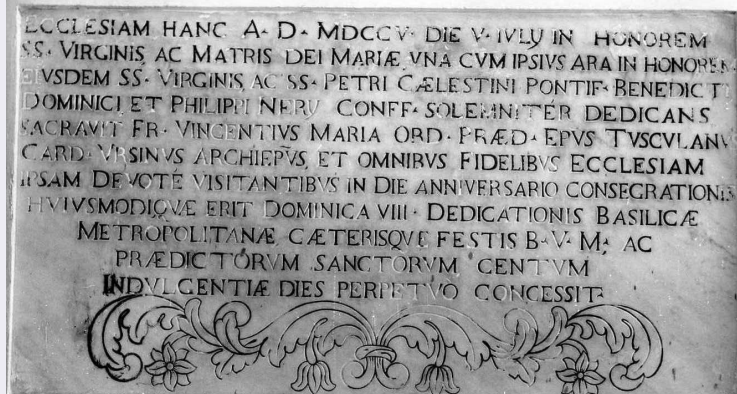 ECCLESIAM HANC A· D· MDCCV· DIE V· IVLIJ IN HONOREM
SS· VIRGINIS, AC MATRIS DEI MARIÆ, VNA CVM IPSIVS ARA IN HONOREM
EIVSDEM SS· VIRGINIS, AC SS· PETRI CÆLESTINI PONTIF· BENEDICTI
DOMINICI ET PHILIPPI NERIJ CONFF· SOLEMNITÈR DEDICANS
SACRAVIT FR· VINCENTIVS MARIA ORD· PRÆD· EPVS TVSCVLANVS
CARD· VRSINVS ARCHIEPVS, ET OMNIBVS FIDELIBVS ECCLESIAM
IPSAM DEVOTÈ VISITANTIBVS IN DIE ANNIVERSARIO CONSECRATIONIS
HVIVSMODI QVÆ ERIT DOMINICA VIII· DEDICATIONIS BASILICÆ
METROPOLITANÆ, CÆTERISQVE FESTIS B· V· M·, AC
PRÆDICTORVM SANCTORVM CENTVM
INDVLGENTIÆ DIES PERPETVO CONCESSIT·